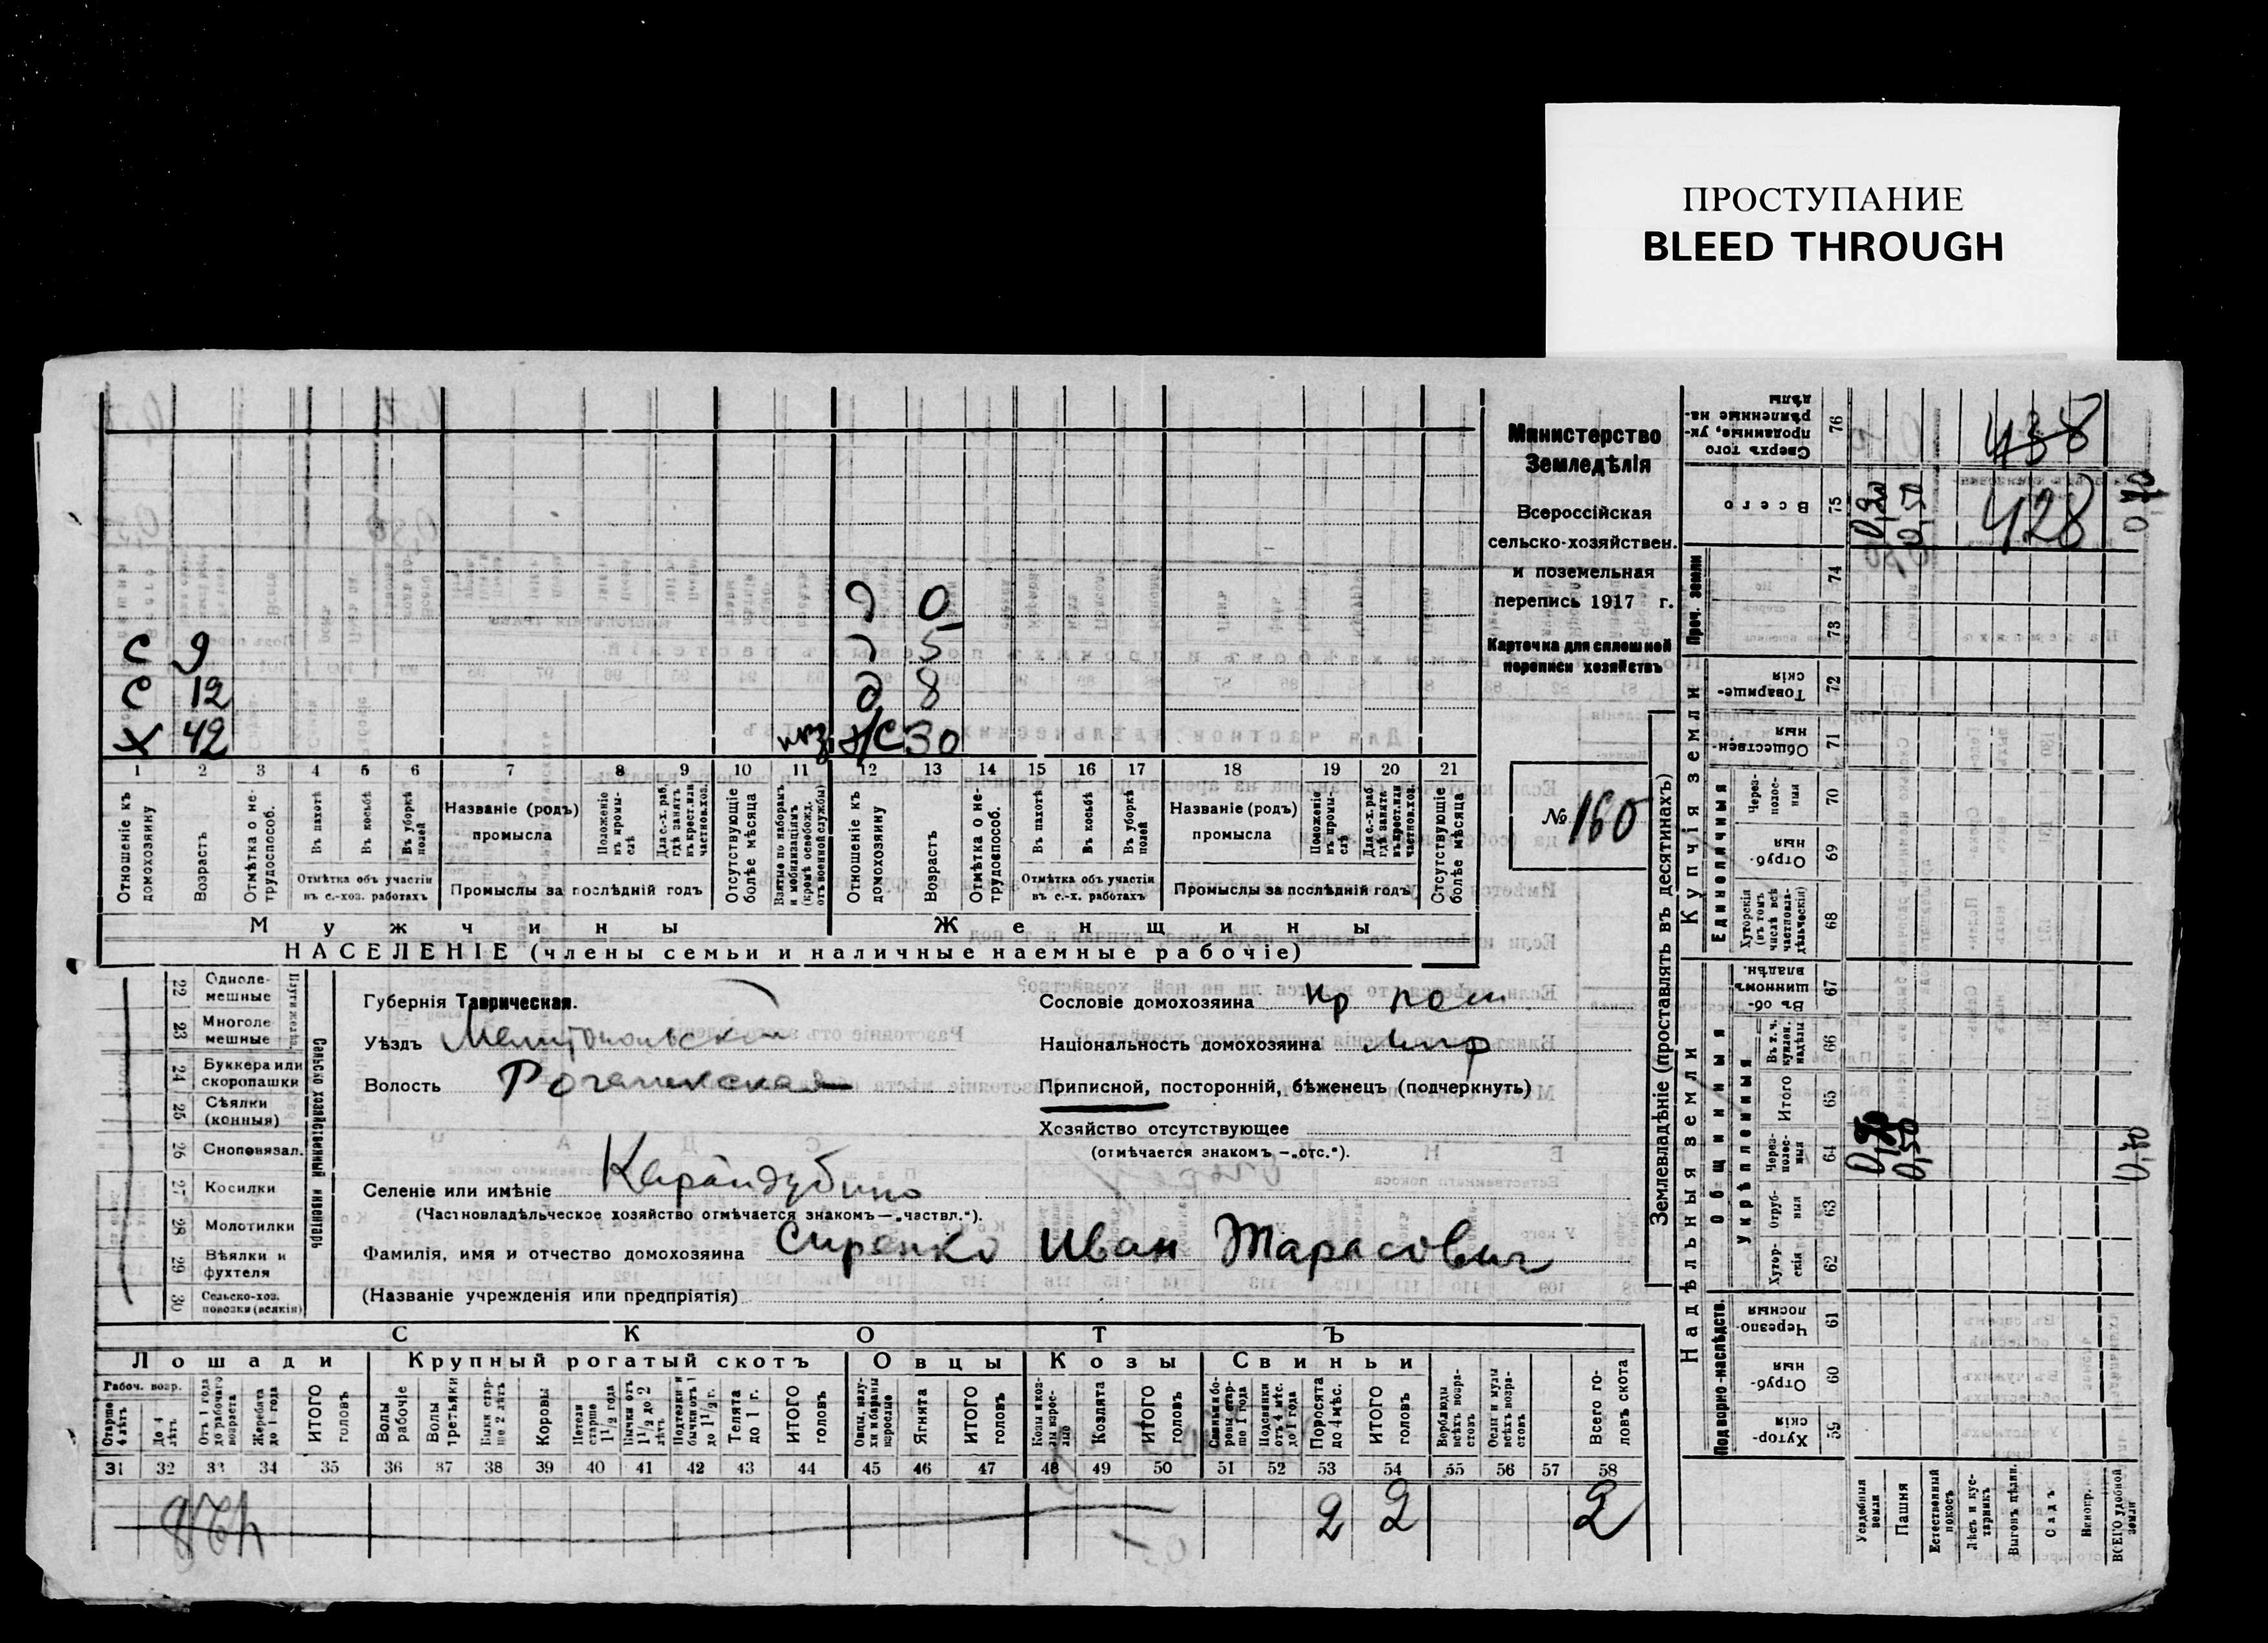 ПРОСТУПАНИЕ
BLEED THROUGH
Министерство
Земледѣлія
Всероссійская
сельско-хозяйствен.
и поземельная
перепись 1917 г.
Карточка для сплошной
переписи хозяйствъ
№ 160
д 0
с 9 д 5
с 12 д 8
х 42 30
1 2 3 4 5 6 7 8 9 10 11 12 13 14 15 16 17 18 19 20 21
Отношеніе къ домохозяину
Возрастъ
Отмѣтка о не-трудоспособ.
Въ пахотѣ
Въ косьбѣ
Въ уборкѣ полей
Отмѣтка объ участіи въ с.-хоз. работахъ
Названіе (родъ) промысла
Положеніе въ промы-слѣ
Для с.-х. раб. гдѣ занятъ въ крест. или частновл. хоз.
Промыслы за послѣдній годъ
Отсутствующіе болѣе мѣсяца
Взятые по наборамъ и мобилизаціямъ (кромѣ освобожд. отъ военной службы)
Отношеніе къ домохозяину
Возрастъ
Отмѣтка о не-трудоспособ.
Въ пахотѣ
Въ косьбѣ
Въ уборкѣ полей
Отмѣтка объ участіи въ с.-х. работахъ
Названіе (родъ) промысла
Положеніе въ промы-слѣ
Для с.-х. раб. гдѣ занята въ крест. или частновл. хоз.
Промыслы за послѣдній годъ
Отсутствующіе болѣе мѣсяца
Мужчины Женщины
НАСЕЛЕНІЕ (члены семьи и наличные наемные рабочіе)
Сельско хозяйственный инвентарь
22 Одноле-мешные
23 Многоле мешные
24 Буккера или скоропашки
25 Сѣялки (конныя)
26 Сноповязал.
27 Косилки
28 Молотилки
29 Вѣялки и фухтеля
30 Сельско-хоз. повозки (всякія)
Губернія Таврическая.
Уѣздъ Мелитопольскій
Волость Рогачикская
Селеніе или имѣніе Карайдубино
(Частновладѣльческое хозяйство отмѣчается знакомъ—„частвл.“).
Фамилія, имя и отчество домохозяина Сиренко Иван Тарасович
(Названіе учрежденія или предпріятія)
Сословіе домохозяина кр
Національность домохозяина
Приписной, посторонній, бѣженецъ (подчеркнуть)
Хозяйство отсутствующее
(отмѣчается знакомъ —„отс.“).
СКОТЪ
Лошади Крупный рогатый скотъ Овцы Козы Свиньи
Рабоч. возр.
Старше 4 лѣтъ
До 4 лѣтъ
Отъ 1 года до рабочаго возраста
Жеребята до 1 года
ИТОГО головъ
Волы рабочіе
Волы третьяки
Быки стар-ше 2 лѣтъ
Коровы
Нетели старше 1½ года
Бычки отъ 1½ до 2 лѣтъ
Подтелки и бычки отъ 1 до 1½ г.
Телята до 1 г.
ИТОГО головъ
Овцы, валу-хи и бараны взрослые
Ягнята
ИТОГО головъ
Козы и коз-лы взрос-лые
Козлята
ИТОГО головъ
Свиньи и бо-ровы стар-ше 1 года
Подсвинки отъ 4 мѣс. до 1 года
Поросята до 4 мѣс.
ИТОГО головъ
Верблюды всѣхъ возра-стовъ
Ослы и мулы всѣхъ возра-стовъ
Всего го-ловъ скота
31 32 33 34 35 36 37 38 39 40 41 42 43 44 45 46 47 48 49 50 51 52 53 54 55 56 57 58
2 2 2
428
Землевладѣніе (проставлять въ десятинахъ)
Сверхъ того проданные, ук-рѣпленные на-дѣлы 76 438
Всего 75 0,20 0,50 428 0,70
Проч. земли
74
73
Купчія земли
Товарище-скія 72
Обществен-ныя 71
Единоличныя
Через-полос-ныя 70
Отруб-ныя 69
Хуторскія (въ томъ числѣ всѣ частновла-дѣльческія) 68
Надѣльныя земли
Общинныя
Въ об-щинномъ владѣн. 67
Укрѣпленныя
Въ т. ч. куплен. надѣлы 66
Итого 65
Через-полос-ныя 64 0,20 0,50 0,70
Отруб-ныя 63
Хутор-скія 62
Подворно-наслѣдств.
Черезпо-лосныя 61
Отруб-ныя 60
Хутор-скія 59
Усадебныя земли
Пашня
Естественный покосъ
Лѣсъ и кус-тарникъ
Выгонъ дѣлян.
Садъ
Виногр.
ВСЕГО удобной земли